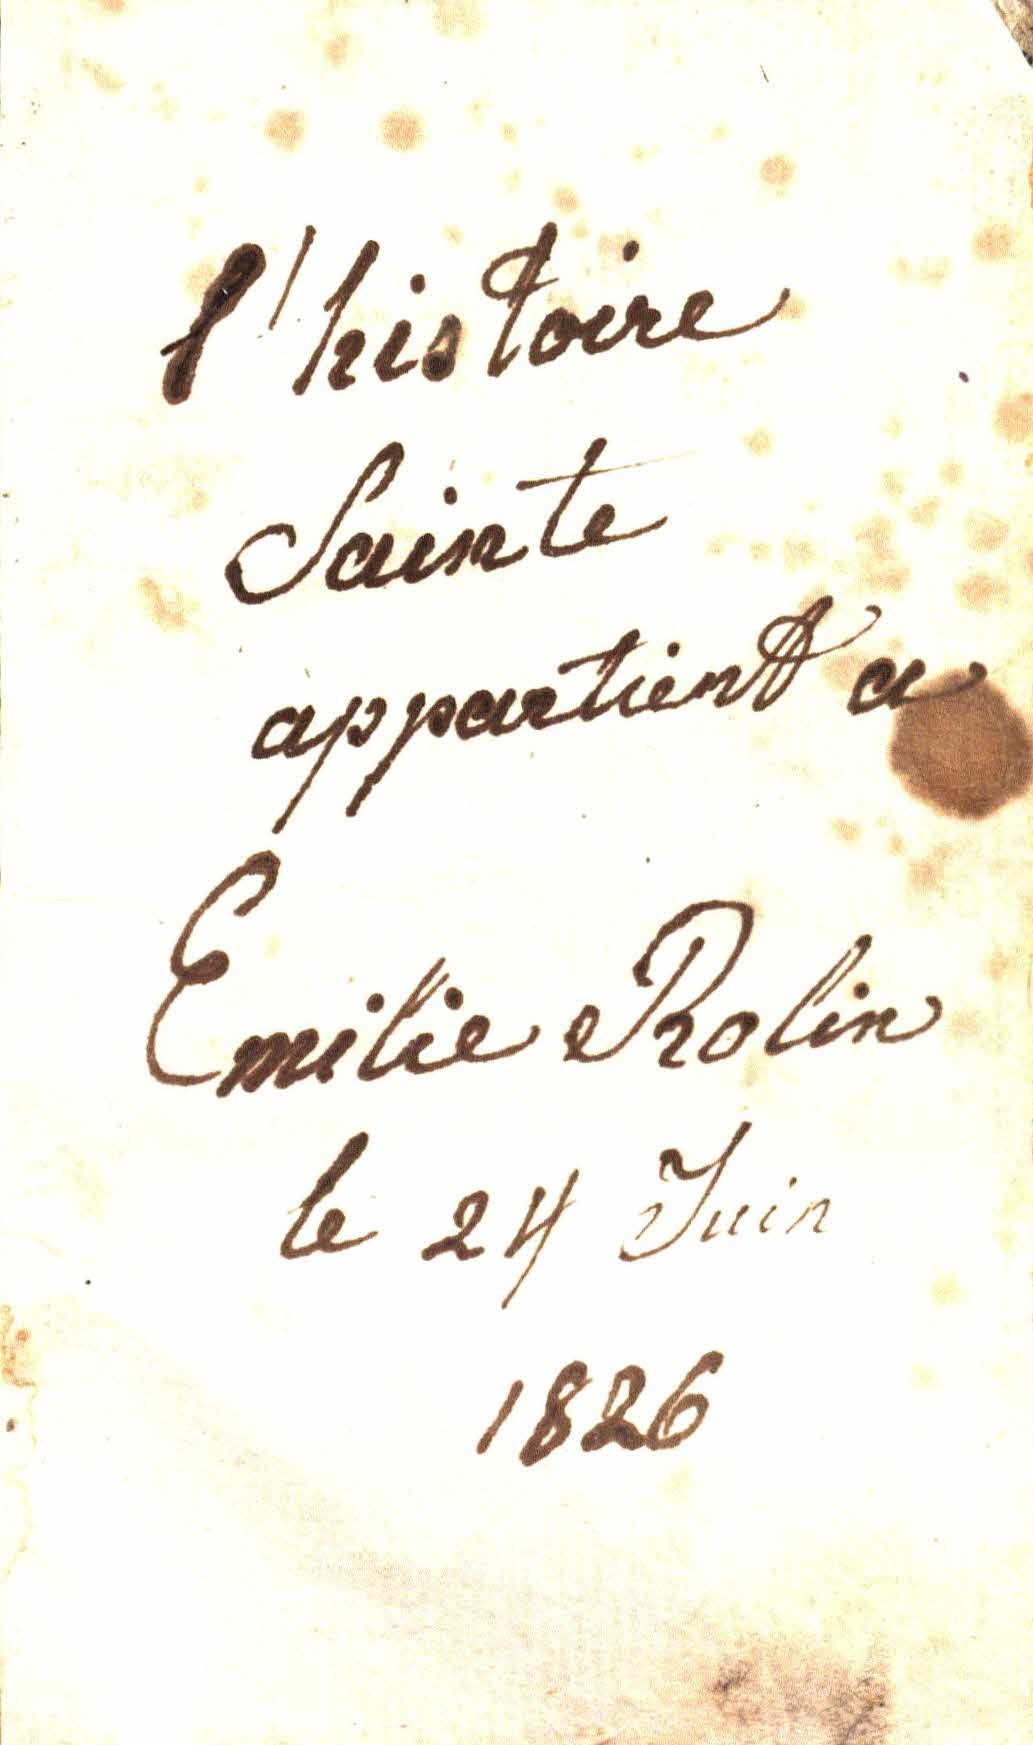 l'histoire
Sainte
appartient a
Emilie Rolin
le 24 Juin
1826